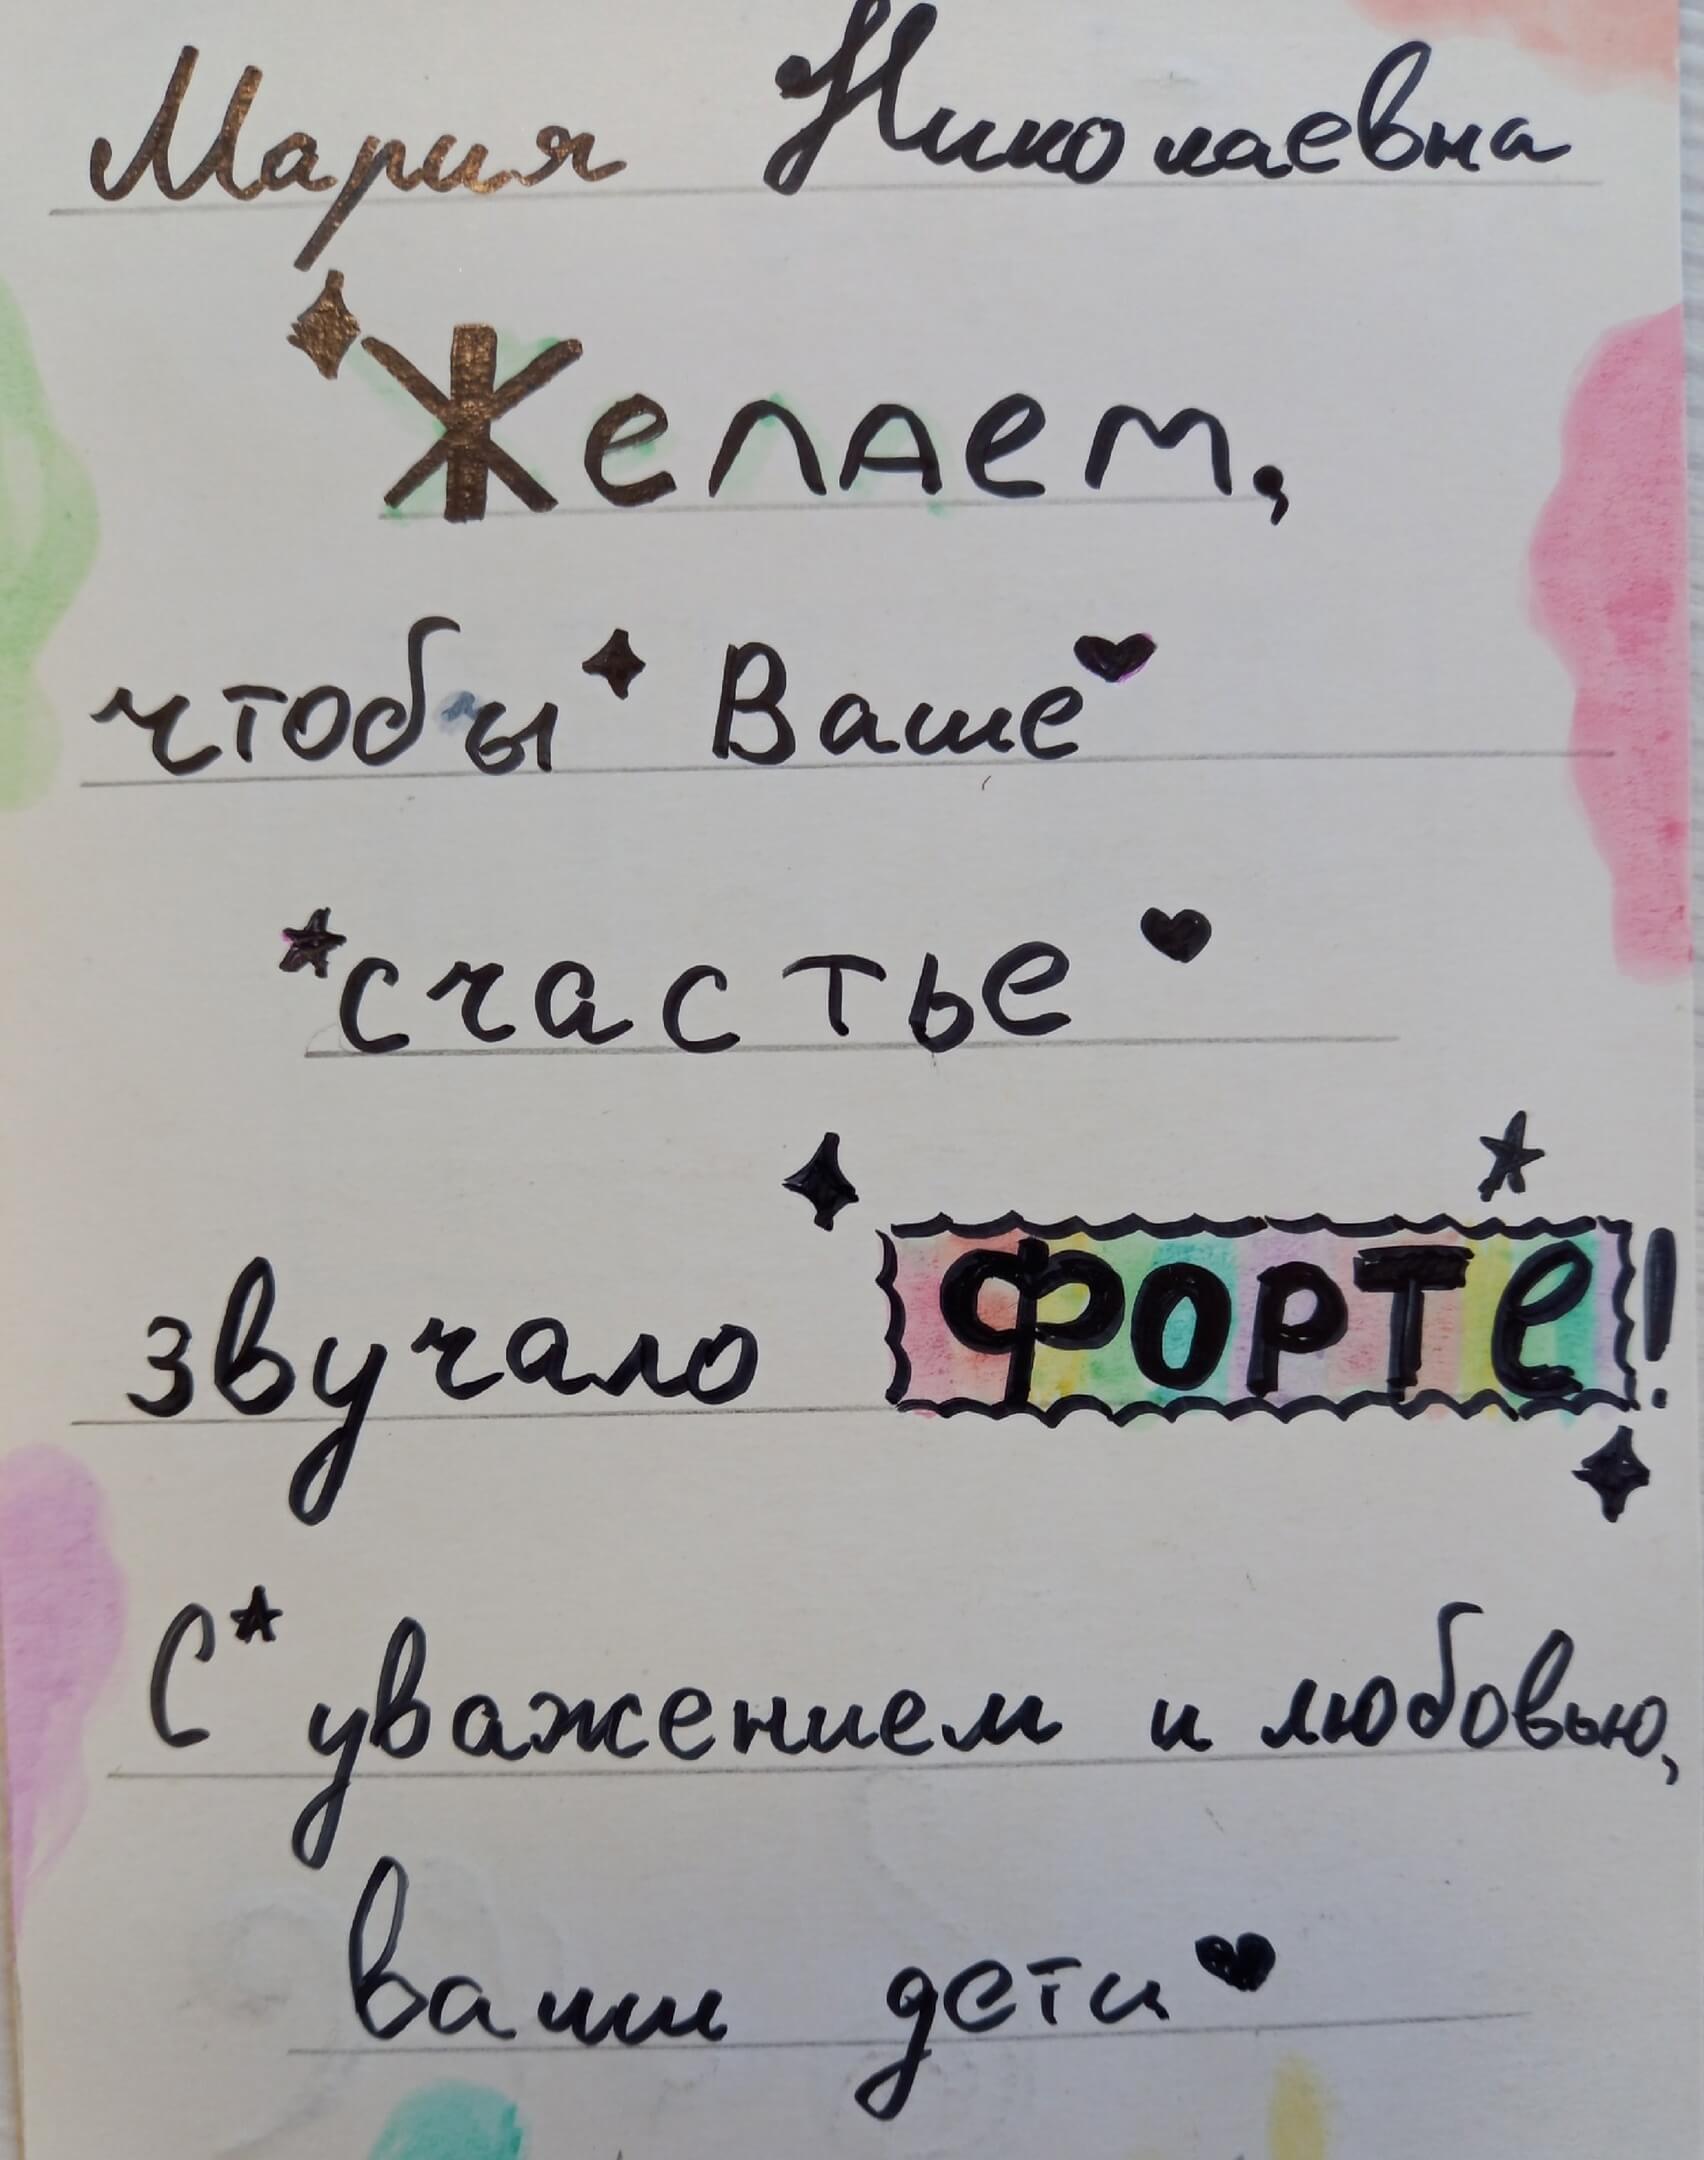 Мария Николаевна
Желаем,
чтобы Ваше
счастье
звучало ФОРТЕ!
С уважением и любовью,
ваши дети